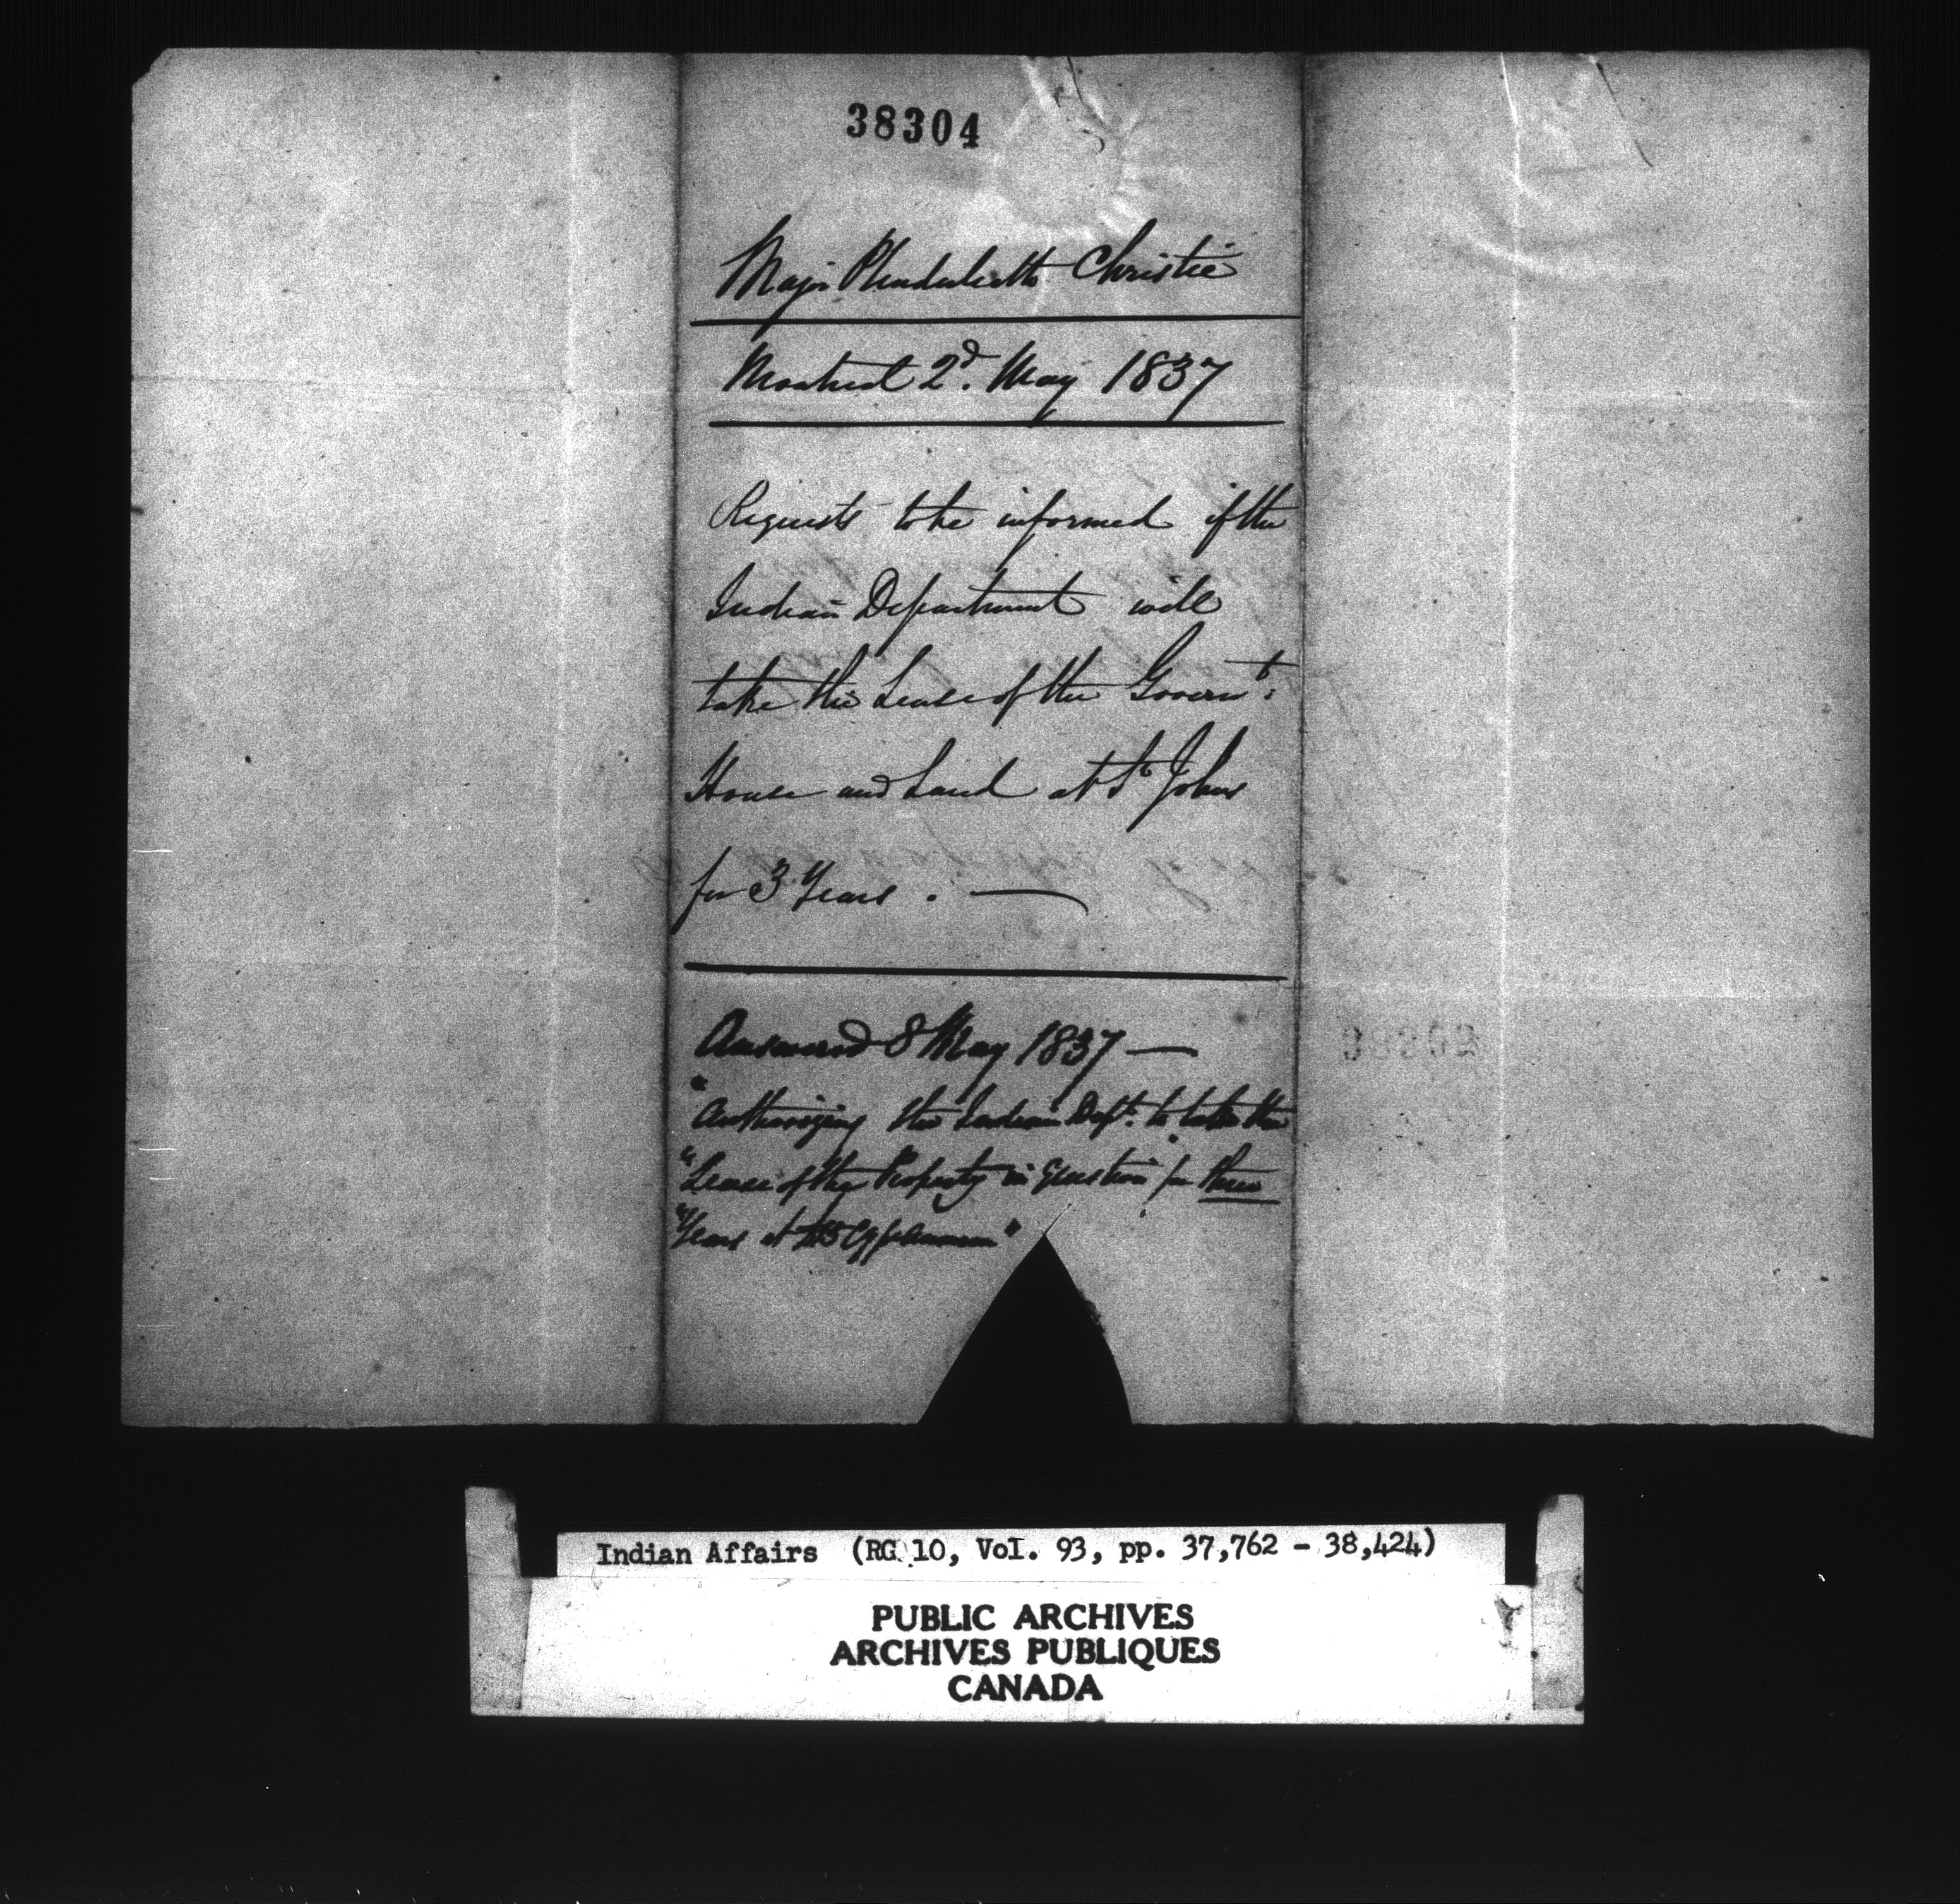 38304
Major Plenderleath Christie
Montreal 2d. May 1837
Requests to be informed if the
Indian Department will
take the Lease of the Governt:
House and Land at St Johns
for 3 Years . —
Answered 8 May 1837 —
"Authorizing the Indian Dept. to take the
"Lease of the Property in Question for three
"Years at
Indian Affairs (RG 10, Vol. 93, pp. 37,762 - 38,424)
PUBLIC ARCHIVES
ARCHIVES PUBLIQUES
CANADA